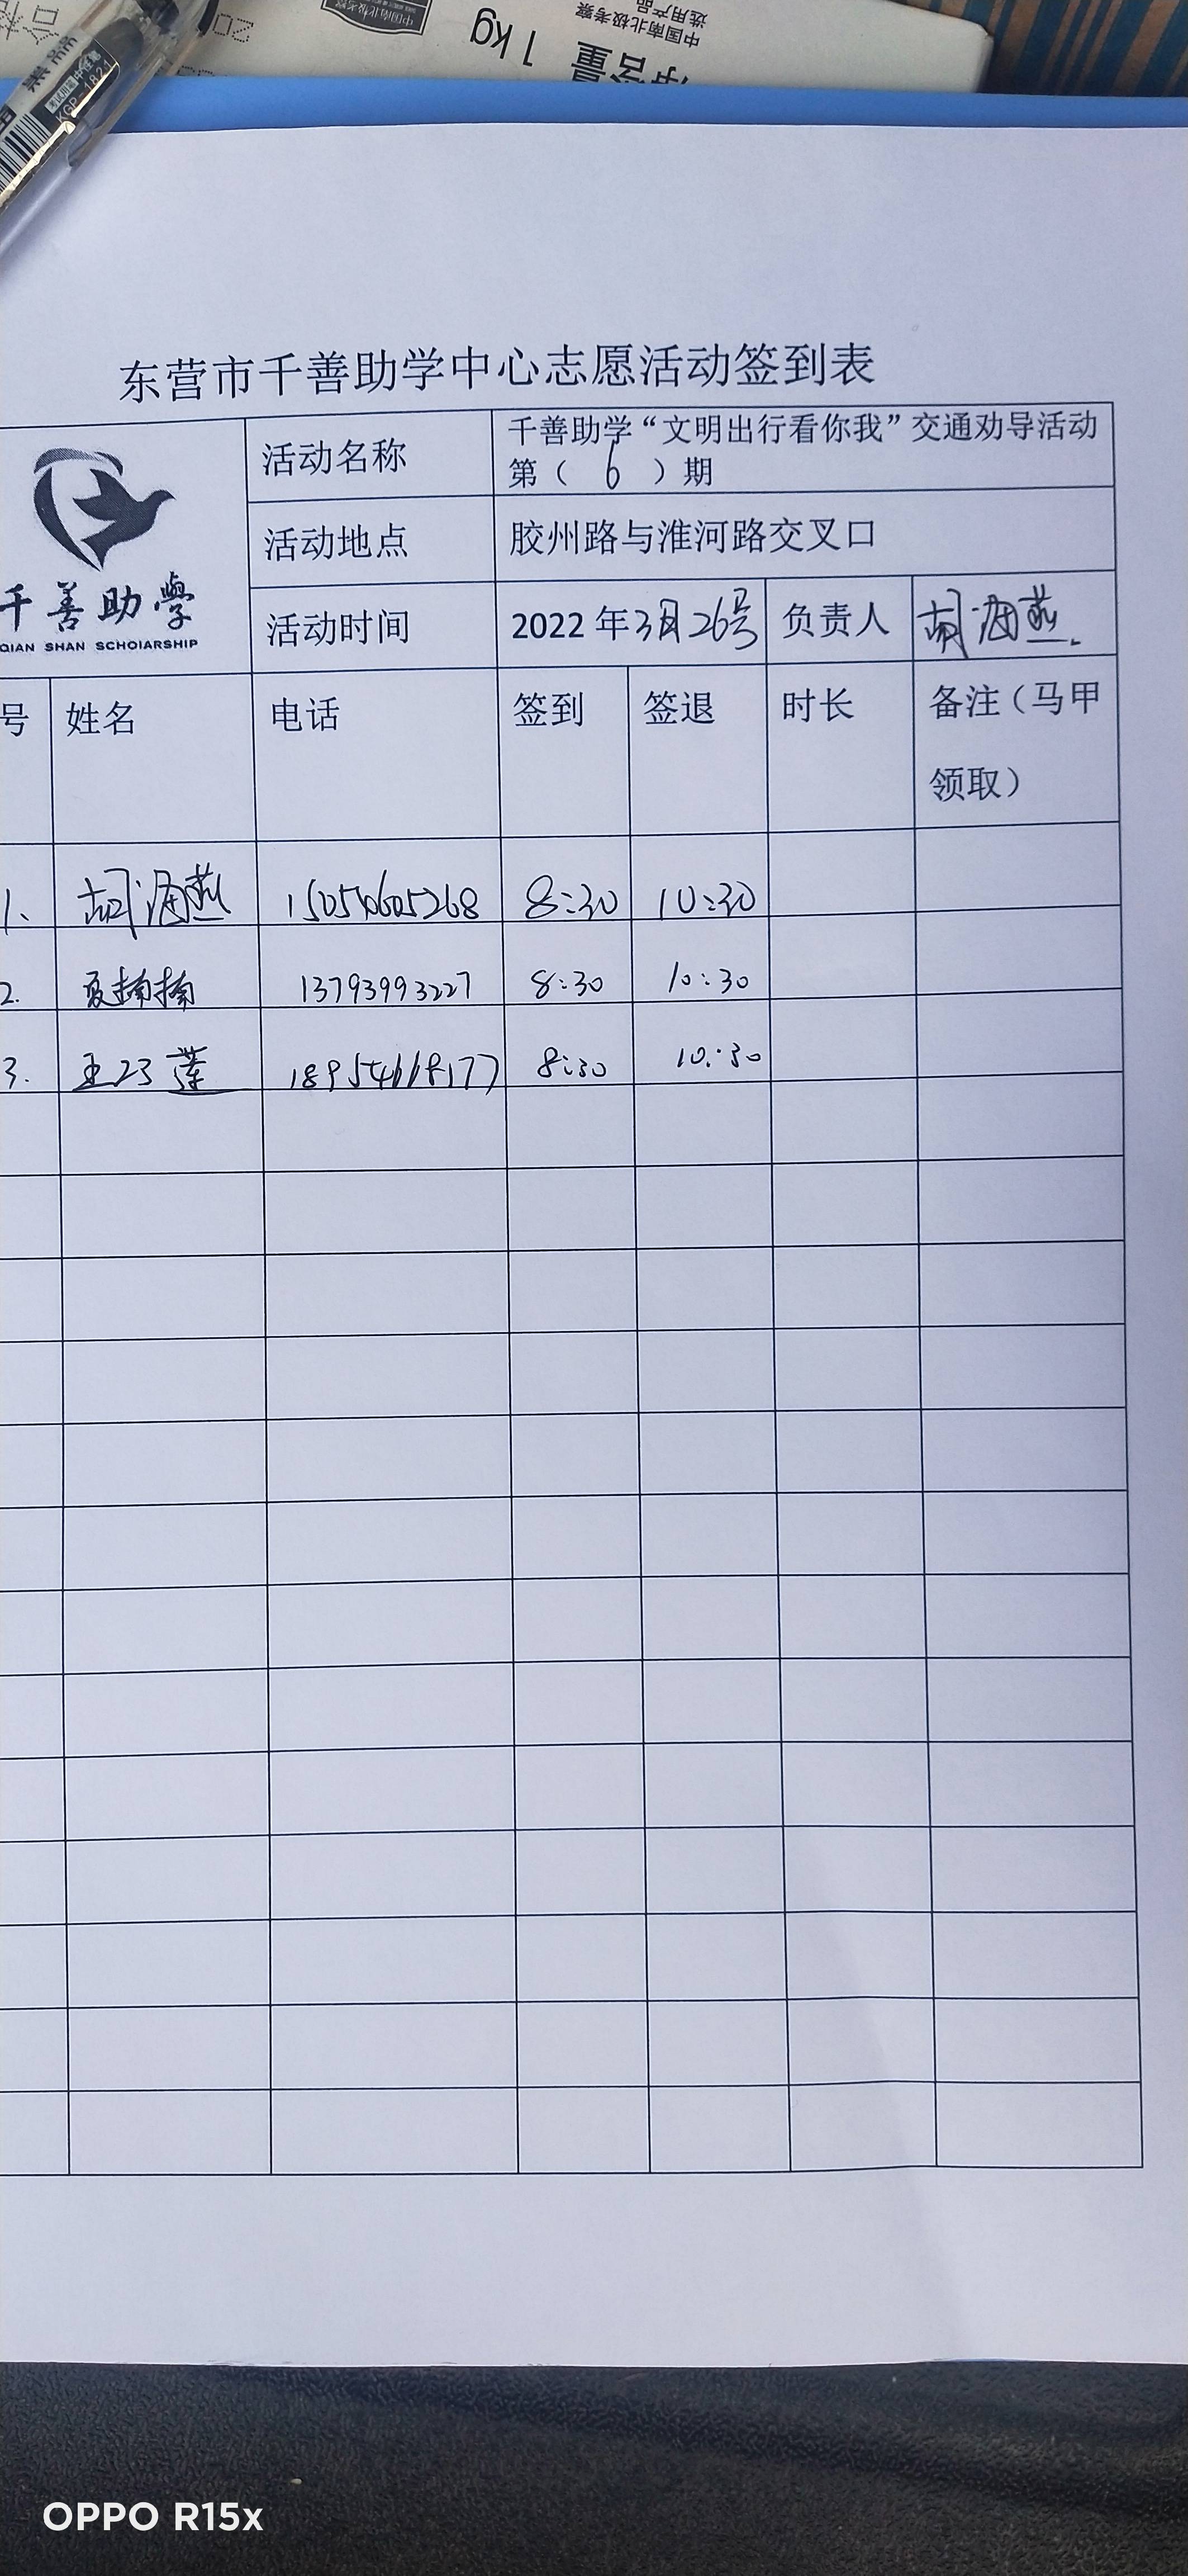 中国南北极考察
选用产品
净含量 1kg
KGP-1821
东营市千善助学中心志愿活动签到表
活动名称
千善助学“文明出行看你我”交通劝导活动
第（ 6 ）期
活动地点
胶州路与淮河路交叉口
千善助學
QIAN SHAN SCHOIARSHIP
活动时间
2022年3月26号
负责人
胡海燕
号 姓名 电话 签到 签退 时长 备注（马甲
领取）
1、 胡海燕 15054605268 8:30 10:30
2. 夏楠楠 13793993227 8:30 10:30
3. 王 莲 8:30 10:30
OPPO R15x